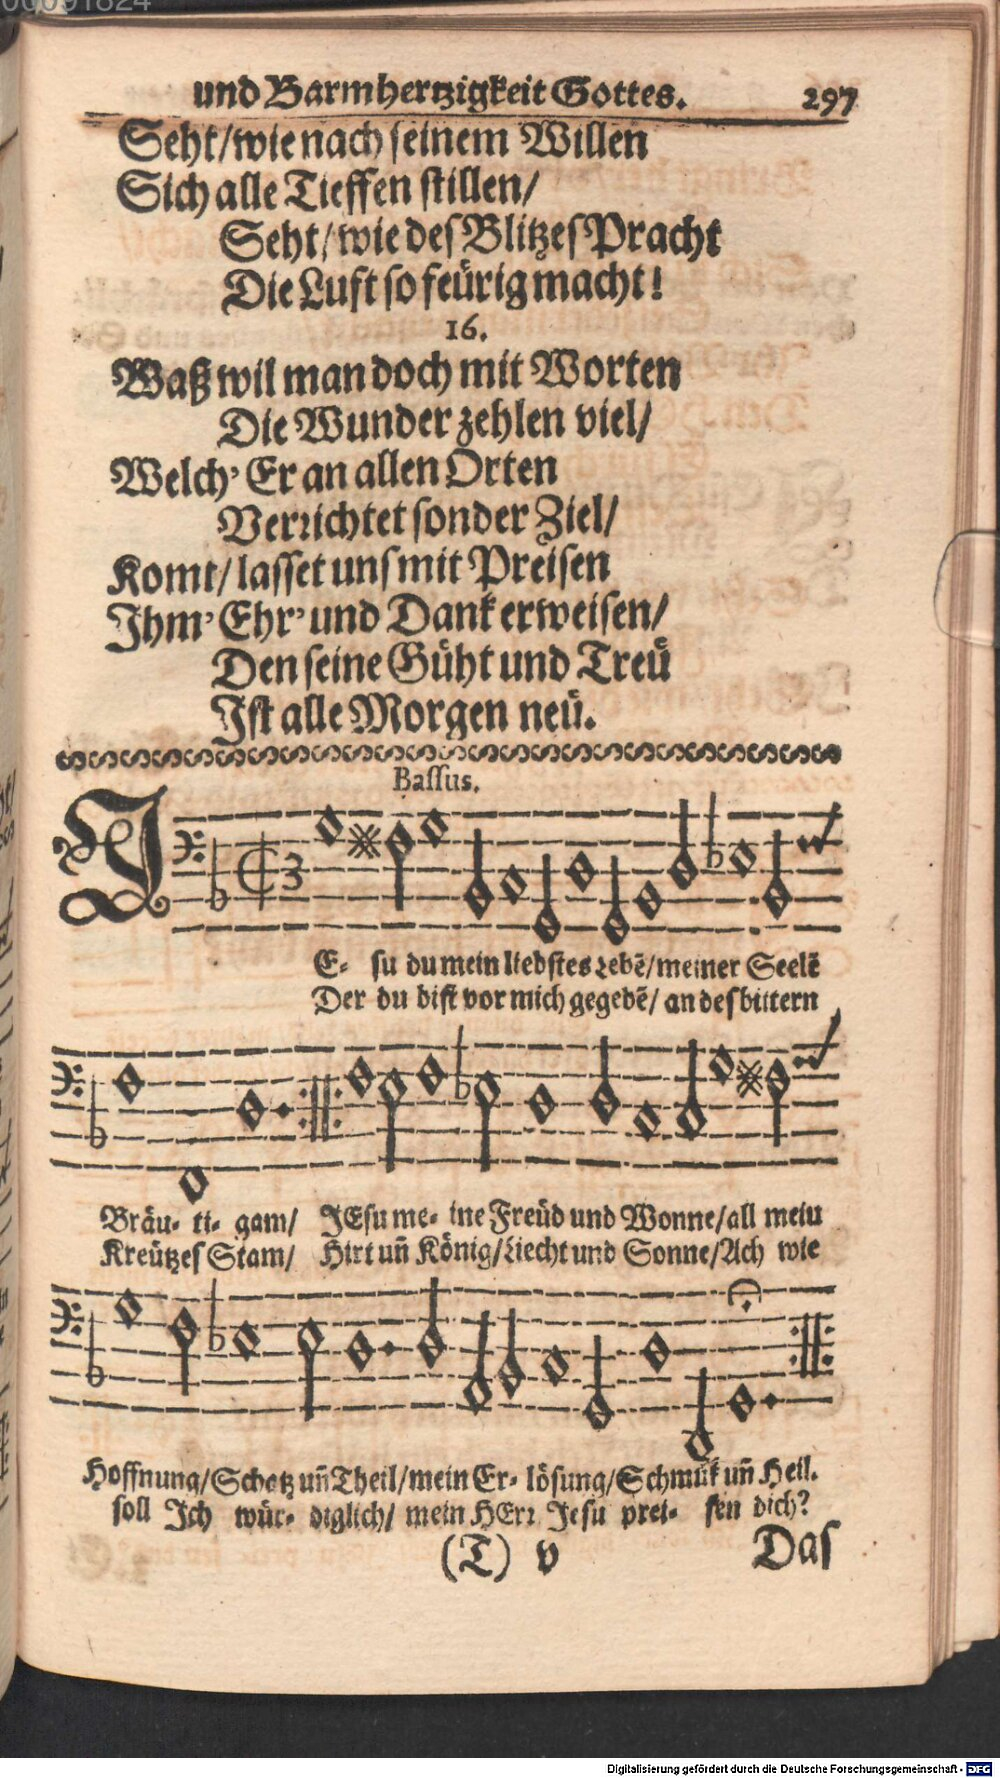 00091824
und Barmhertzigkeit Gottes. 297
Seht/wie nach seinem Willen
Sich alle Tieffen stillen/
Seht/wie des Blitzes Pracht
Die Luft so feürig macht!
16.
Waß wil man doch mit Worten
Die Wunder zehlen viel/
Welch' Er an allen Orten
Verrichtet sonder Ziel/
Komt/lasset uns mit Preisen
Ihm' Ehr' und Dank erweisen/
Den seine Güht und Treü
Ist alle Morgen neü.
Bassus.
J
E- su du mein liebstes Lebē/meiner Seelē
Der du bist vor mich gegebē/ an des bittern
Bräu- ti- gam/ JEsu me- ine Freüd und Wonne/all mein
Kreützes Stam/ Hirt uñ König/Liecht und Sonne/Ach wie
Hoffnung/Schatz uñ Theil/mein Er- lösung/Schmük uñ Heil.
soll Ich wür- diglich/ mein HErr Jesu prei- sen dich?
(T) v Das
Digitalisierung gefördert durch die Deutsche Forschungsgemeinschaft - DFG